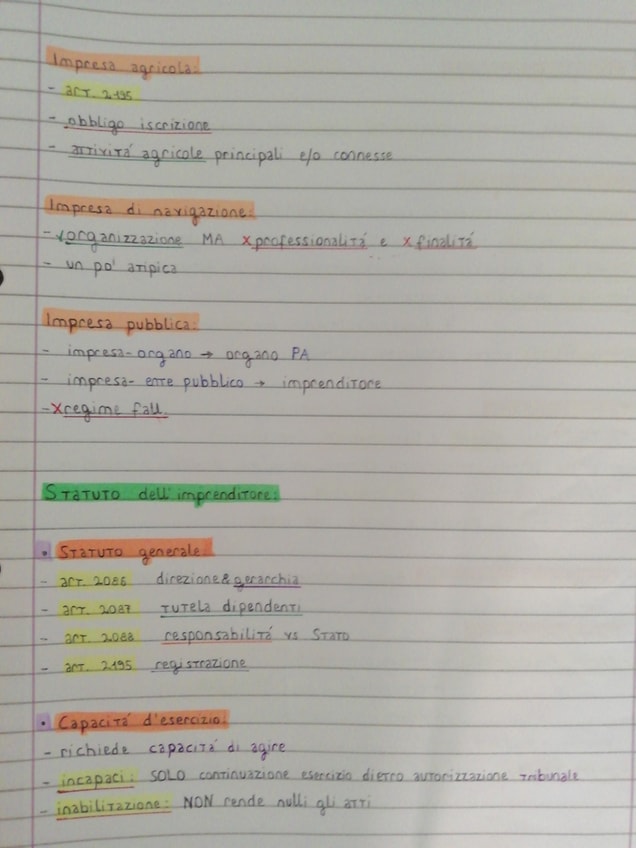 Impresa agricola:
- art. 2195
- obbligo iscrizione
- attività agricole principali e/o connesse
Impresa di navigazione:
- √organizzazione MA xprofessionalità e xfinalità
- un po' atipica
Impresa pubblica:
- impresa-organo → organo PA
- impresa-ente pubblico → imprenditore
- Xregime fall.
Statuto dell'imprenditore:
• Statuto generale:
- art. 2086 direzione & gerarchia
- art. 2087 tutela dipendenti
- art. 2088 responsabilità vs Stato
- art. 2195 registrazione
• Capacità d'esercizio:
- richiede capacità di agire
- incapaci: SOLO continuazione esercizio dietro autorizzazione tribunale
- inabilitazione: NON rende nulli gli atti